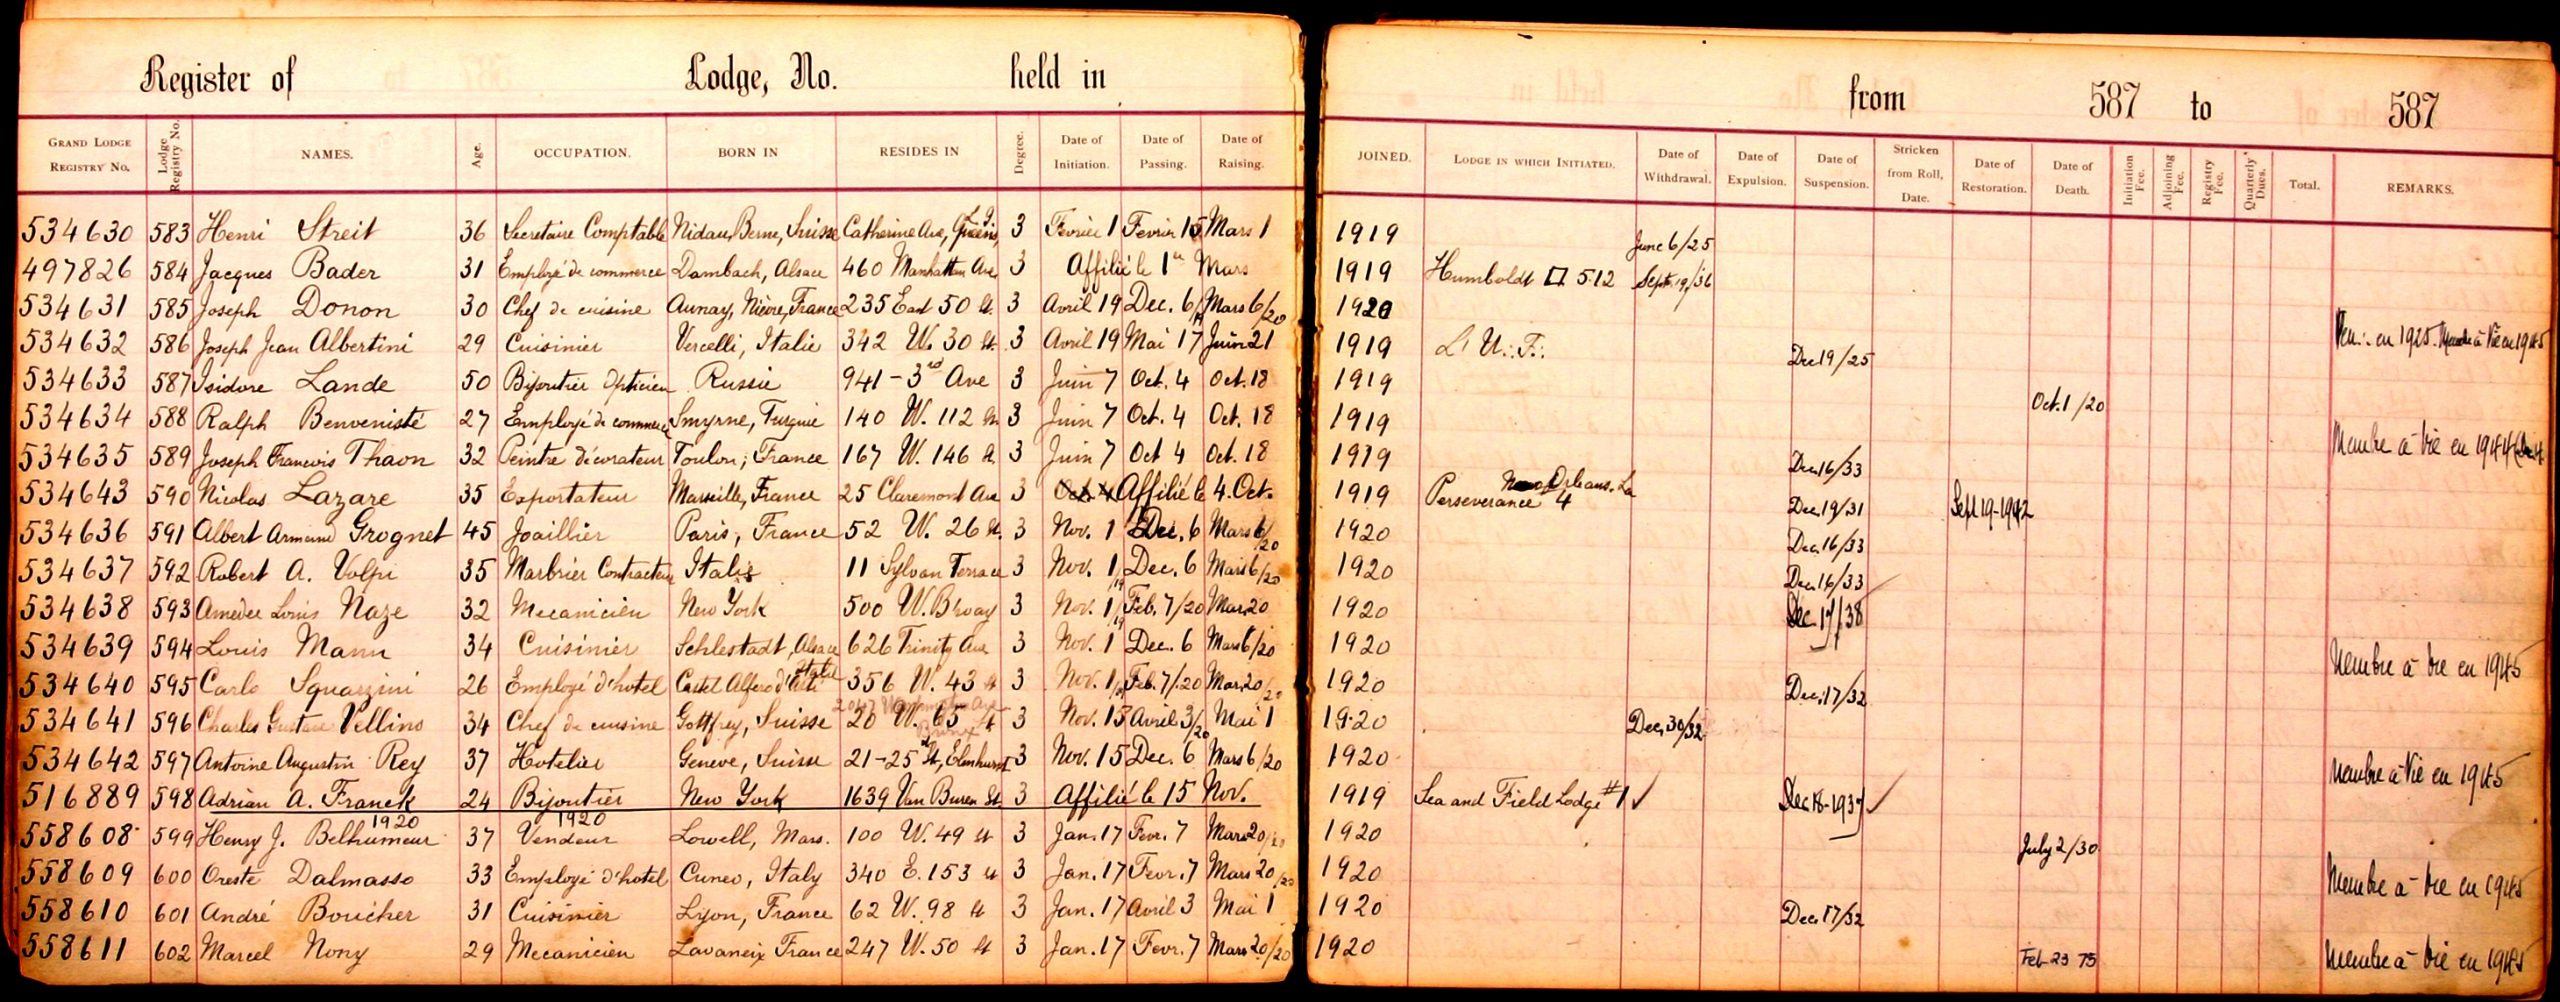 Register of Lodge, No. held in from 587 to 587
GRAND LODGE REGISTRY NO. Lodge Registry No. NAMES. Age. OCCUPATION. BORN IN RESIDES IN Degree. Date of Initiation. Date of Passing. Date of Raising. JOINED. LODGE IN WHICH INITIATED. Date of Withdrawal. Date of Expulsion. Date of Suspension. Stricken from Roll, Date. Date of Restoration. Date of Death. Initiation Fee. Adjoining Fee. Registry Fee. Quarterly Dues. Total. REMARKS.
534630 583 Henri Streit 36 Secretaire Comptable Nidau, Berne, Suisse Catherine Ave, Queens, L.I. 3 Fevrier 1 Fevrier 15 Mars 1 1919 June 6/25
497826 584 Jacques Bader 31 Employé de commerce Dambach, Alsace 460 Manhattan Ave 3 Affilié le 1er Mars 1919 Humboldt 512 Sept. 19/36
534631 585 Joseph Donon 30 Chef de cuisine Aunay, Nièvre, France 235 East 50 St. 3 Avril 19 Dec. 6/19 Mars 6/20 1920 Ven∴ en 1925. Membre à Vie en 1945
534632 586 Joseph Jean Albertini 29 Cuisinier Vercelli, Italie 342 W. 30 St. 3 Avril 19 Mai 17 Juin 21 1919 L' U∴ F∴ Dec 19/25
534633 587 Isidore Lande 50 Bijoutier Opticien Russie 941 - 3rd Ave 3 Juin 7 Oct. 4 Oct. 18 1919 Oct. 1/20
534634 588 Ralph Benvenisté 27 Employé de commerce Smyrne, Turquie 140 W. 112 St 3 Juin 7 Oct. 4 Oct. 18 1919 Membre à Vie en 1944
534635 589 Joseph Francois Thaon 32 Peintre décorateur Toulon, France 167 W. 146 St. 3 Juin 7 Oct 4 Oct. 18 1919 Dec. 16/33
534643 590 Nicolas Lazare 35 Exportateur Marseille, France 25 Claremont Ave 3 Oct. 4 Affilié le 4. Oct. 1919 Perseverance 4 New Orleans. La Dec. 19/31 Sept 19-1942
534636 591 Albert Armand Grognet 45 Joaillier Paris, France 52 W. 26 St. 3 Nov. 1 Dec. 6 Mars 6/20 1920 Dec. 16/33
534637 592 Robert A. Volpi 35 Marbrier Contracteur Italie 11 Sylvan Terrace 3 Nov. 1/19 Dec. 6 Mars 6/20 1920 Dec. 16/33
534638 593 Amedee Louis Naze 32 Mecanicien New York 500 W. B'way 3 Nov. 1/19 Feb. 7/20 Mar. 20 1920 Dec. 17/38
534639 594 Louis Mann 34 Cuisinier Schlestadt, Alsace 626 Trinity Ave 3 Nov. 1 Dec. 6 Mars 6/20 1920 Membre à Vie en 1945
534640 595 Carlo Squarzini 26 Employé d'hotel Castel Alfero d'Asti Italie 356 W. 43 St 3 Nov. 1/19 Feb. 7/20 Mar. 20/20 1920 Dec. 17/32
534641 596 Charles Gustave Vellino 34 Chef de cuisine Gottfrey, Suisse 20 W. 65 St Bronx 3 Nov. 15 Avril 3/20 Mai 1 1920 Dec. 30/32
534642 597 Antoine Augustin Rey 37 Hotelier Geneve, Suisse 21-25 St, Elmhurst 3 Nov. 15 Dec. 6 Mars 6/20 1920 Membre à Vie en 1945
516889 598 Adrian A. Franck 24 Bijoutier New York 1639 Van Buren St. 3 Affilié le 15 Nov. 1919 Sea and Field Lodge #1 ✓ Dec 18-1937 ✓
1920 1920
558608 599 Henry J. Belhumeur 37 Vendeur Lowell, Mass. 100 W. 49 St 3 Jan. 17 Fevr. 7 Mars 20/20 1920 July 2/30
558609 600 Oreste Dalmasso 33 Employé d'hotel Cuneo, Italy 340 E. 153 St 3 Jan. 17 Fevr. 7 Mars 20/20 1920 Membre à Vie en 1945
558610 601 André Boucher 31 Cuisinier Lyon, France 62 W. 98 St 3 Jan. 17 Avril 3 Mai 1 1920 Dec. 17/32
558611 602 Marcel Nony 29 Mecanicien Lavaneix France 247 W. 50 St 3 Jan. 17 Fevr. 7 Mars 20/20 1920 Feb 23 75 Membre à Vie en 1945